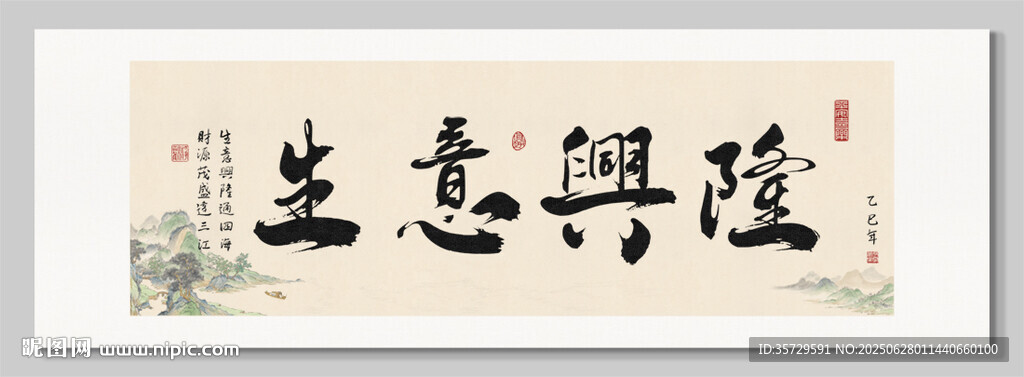 生意興隆
乙巳年
生意興隆通四海
財源茂盛達三江
昵图网 www.nipic.com
ID:35729591 NO:20250628011440660100